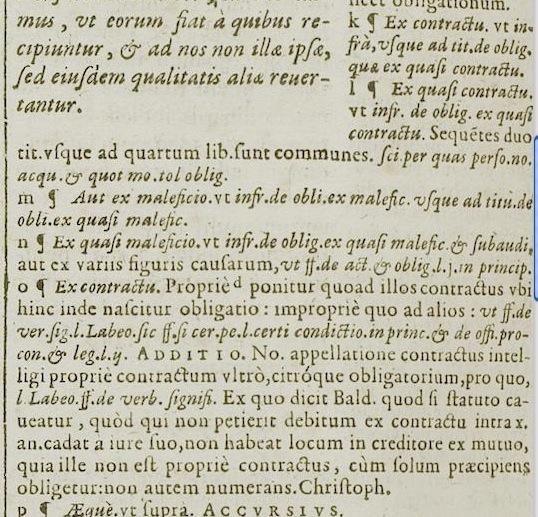 mus, vt eorum fiat à quibus re-
cipiuntur, & ad nos non illæ ipsæ,
sed eiusdem qualitatis aliæ reuer-
tantur.
licet obligationum.
k ¶ Ex contractu. vt in-
frà, vsque ad tit. de oblig.
quæ ex quasi contractu.
l ¶ Ex quasi contractu.
vt infr. de oblig. ex quasi
contractu. Sequẽtes duo
tit. vsque ad quartum lib. sunt communes. sci. per quas perso. no.
acqu. & quot mo. tol oblig.
m ¶ Aut ex maleficio. vt infr. de obli. ex malefic. vsque ad titu. de
obli. ex quasi malefic.
n ¶ Ex quasi maleficio. vt infr. de oblig. ex quasi malefic. & subaudi,
aut ex variis figuris causarum, vt ff. de act. & oblig. l. j. in princip.
o ¶ Ex contractu. Propriè d ponitur quoad illos contractus vbi
hinc inde nascitur obligatio : impropriè quo ad alios : vt ff. de
ver. sig. l. Labeo. sic ff. si cer. pe. l. certi condictio. in princ. & de offi. pro-
con. & leg. l. ij. ADDITIO. No. appellatione contractus intel-
ligi propriè contractum vltrò, citróque obligatorium, pro quo,
l. Labeo. ff. de verb. signifi. Ex quo dicit Bald. quod si statuto ca-
ueatur, quòd qui non petierit debitum ex contractu intra x.
an. cadat à iure suo, non habeat locum in creditore ex mutuo,
quia ille non est propriè contractus, cùm solum præcipiens
obligetur: non autem numerans. Christoph.
p ¶ Æquè. vt supra. ACCVRSIVS.